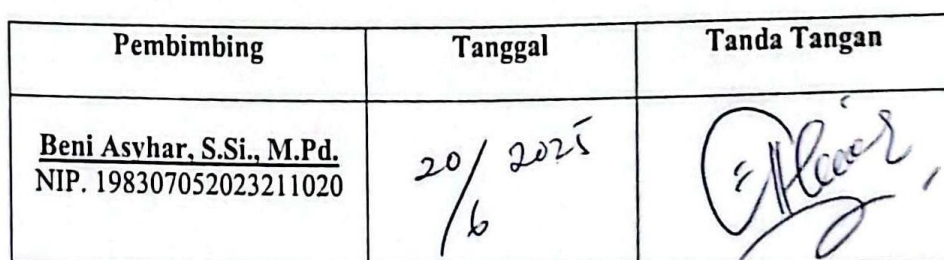 Pembimbing
Tanggal
Tanda Tangan
Beni Asyhar, S.Si., M.Pd.
NIP. 198307052023211020
20/6 2025